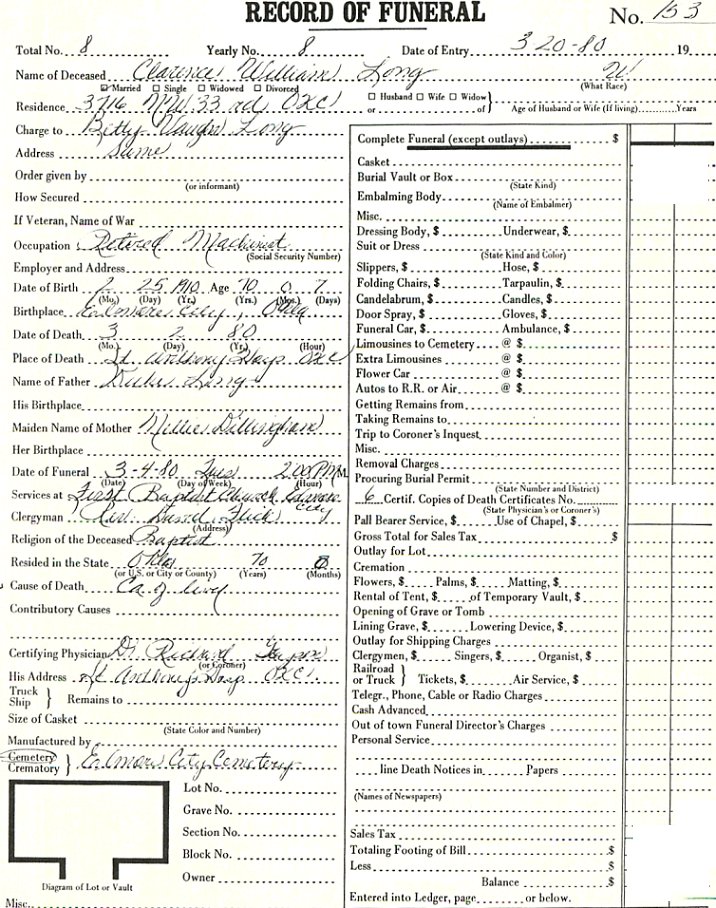 RECORD OF FUNERAL No. 153
Total No. 8 Yearly No. 8 Date of Entry 3-20-80 19
Name of Deceased Clarence William Long W
☑ Married ☐ Single ☐ Widowed ☐ Divorced (What Race)
Residence 3716 NW 33rd OKC ☐ Husband ☐ Wife ☐ Widow
or of Age of Husband or Wife (If living) Years
Charge to Betty Vaughn Long
Address Same
Order given by
(or informant)
How Secured
If Veteran, Name of War
Occupation Retired Machinist
(Social Security Number)
Employer and Address
Date of Birth 2 25 1910 Age 70 0 7
(Mo.) (Day) (Yr.) (Yrs.) (Mos.) (Days)
Birthplace Elmore City, Okla
Date of Death 3 2 80
(Mo.) (Day) (Yr.) (Hour)
Place of Death St. Anthony Hosp OKC
Name of Father Long
His Birthplace
Maiden Name of Mother Millie Dillingham
Her Birthplace
Date of Funeral 3-4-80 Tues 2:00 PM M.
(Date) (Day of Week) (Hour)
Services at First Baptist Church Elmore City
Clergyman Rev. David
(Address)
Religion of the Deceased Baptist
Resided in the State Okla 70 0
(or U.S. or City or County) (Years) (Months)
Cause of Death Ca. of
Contributory Causes
Certifying Physician Dr. Richard
(or Coroner)
His Address St Anthony's Hosp OKC.
Truck
Ship } Remains to
Size of Casket
(State Color and Number)
Manufactured by
Cemetery
Crematory } Elmore City Cemetery
Lot No.
Grave No.
Section No.
Block No.
Owner
Diagram of Lot or Vault
Misc.
Complete Funeral (except outlays) $
Casket
Burial Vault or Box
(State Kind)
Embalming Body
(Name of Embalmer)
Misc.
Dressing Body, $ Underwear, $
Suit or Dress
(State Kind and Color)
Slippers, $ Hose, $
Folding Chairs, $ Tarpaulin, $
Candelabrum, $ Candles, $
Door Spray, $ Gloves, $
Funeral Car, $ Ambulance, $
Limousines to Cemetery @ $
Extra Limousines @ $
Flower Car @ $
Autos to R.R. or Air @ $
Getting Remains from
Taking Remains to
Trip to Coroner's Inquest
Misc.
Removal Charges
Procuring Burial Permit
(State Number and District)
6 Certif. Copies of Death Certificates No.
(State Physician's or Coroner's)
Pall Bearer Service, $ Use of Chapel, $
Gross Total for Sales Tax $
Outlay for Lot
Cremation
Flowers, $ Palms, $ Matting, $
Rental of Tent, $ of Temporary Vault, $
Opening of Grave or Tomb
Lining Grave, $ Lowering Device, $
Outlay for Shipping Charges
Clergymen, $ Singers, $ Organist, $
Railroad
or Truck } Tickets, $ Air Service, $
Telegr., Phone, Cable or Radio Charges
Cash Advanced
Out of town Funeral Director's Charges
Personal Service
line Death Notices in Papers
(Names of Newspapers)
Sales Tax
Totaling Footing of Bill $
Less $
Balance $
Entered into Ledger, page or below.